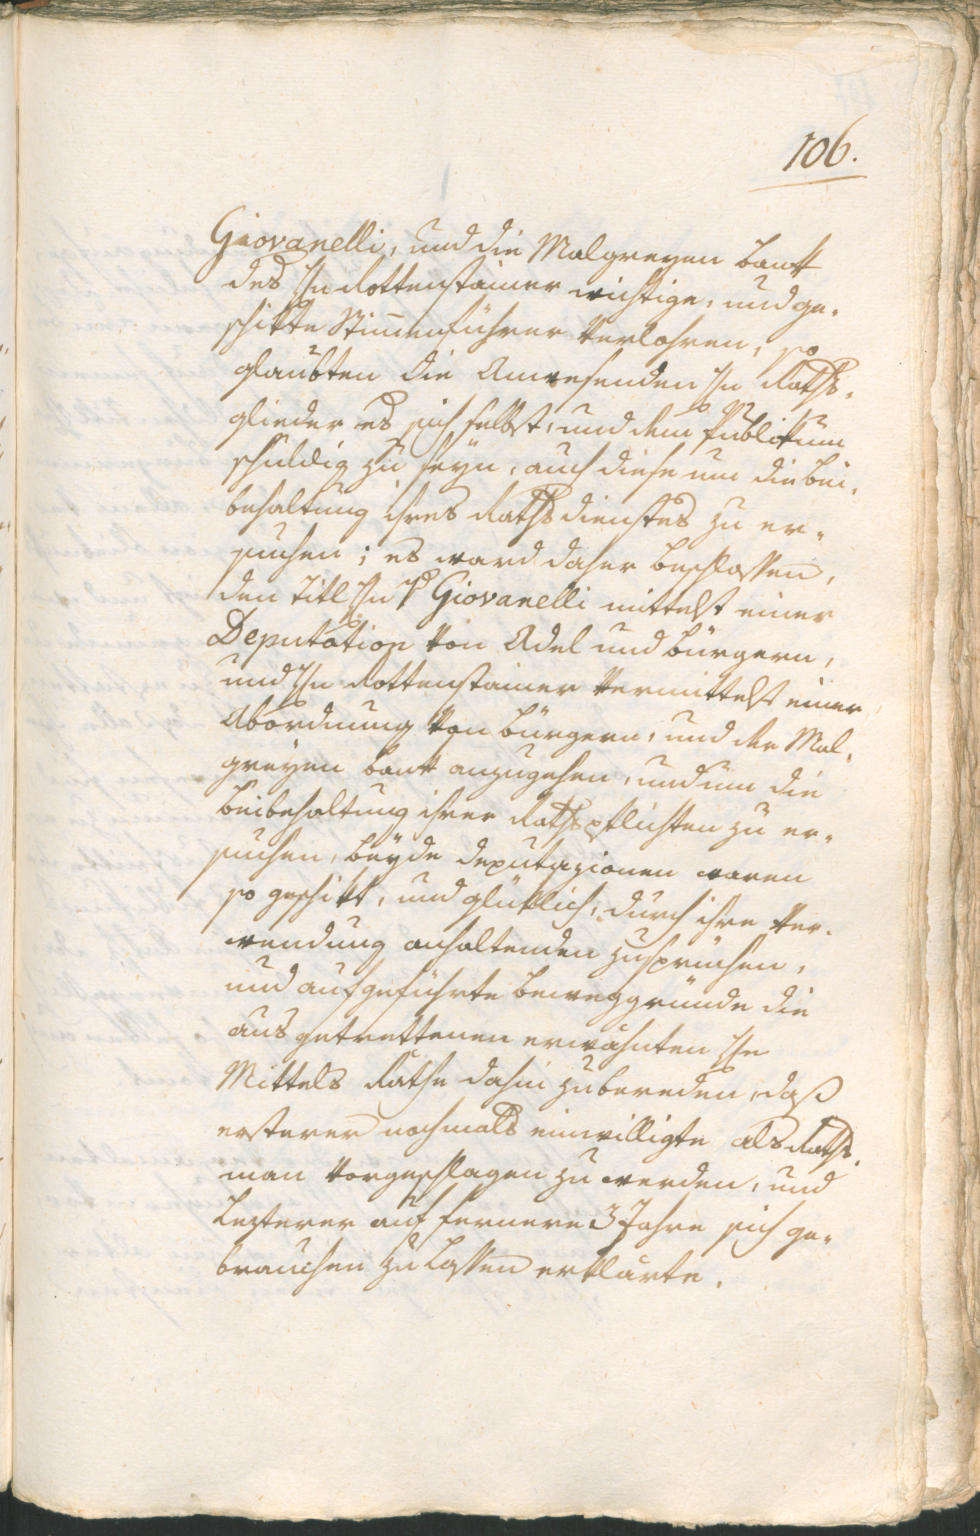 106.
Giovanelli, und die Malgreyen bank
des Hn Rottenstainer wichtige, und ge-
schikte Stimenführer verlohren, so
glaubten die Anwesenden Hn Raths-
glieder es sich selbst, und dem Publikum
schuldig zu seyn, auch diese um die bei-
behaltung ihres Rathsdienstes zu er-
suchen; es ward daher beschlossen,
den Titl Hn v Giovanelli mittelst einer
Deputation von Adel und bürgern,
und Hn Rottenstainer vermittelst einer
Abordnung von bürgern, und der Mal-
greyen bank anzugehen, und um die
beibehaltung ihrer Rathspflichten zu er-
suchen, beyde deputazionen waren
so geschikt, und glüklich, durch ihre ver-
wendung anhaltenden zusprüchen,
und aufgeführte beweggründe die
ausgetrettenen erwähnten Hn
Mittels Räthe dahin zubereden, daß
ersterer nochmals einwilligte als Raths-
man vorgeschlagen zu werden, und
Lezterer auf fernere 3 Jahre sich ge-
brauchen zu lassen erklärte.